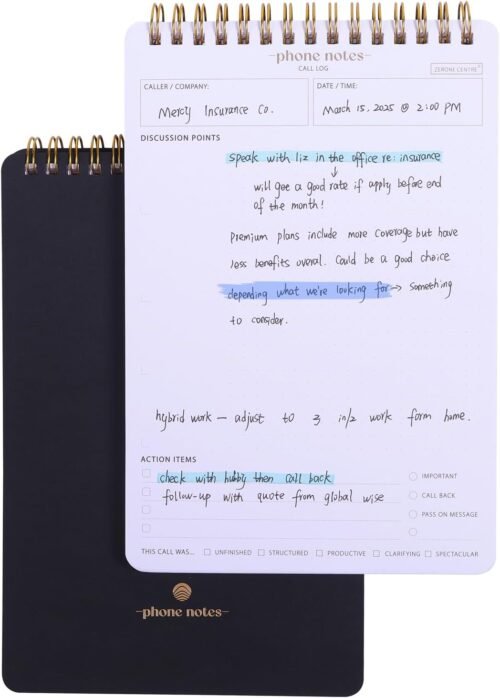 phone notes
CALL LOG
ZERONE CENTRE
CALLER / COMPANY:
Mercy Insurance Co.
DATE / TIME:
March 15, 2025 @ 2:00 PM
DISCUSSION POINTS
speak with liz in the office re: insurance
↓
will gee a good rate if apply before end
of the month!
Premium plans include more coverage but have
less benefits overal. Could be a good choice
depending what we're looking for → something
to consider.
hybrid work — adjust to 3 in/2 work form home.
ACTION ITEMS
check with hubby then call back
follow-up with quote from global wise
IMPORTANT
CALL BACK
PASS ON MESSAGE
THIS CALL WAS... UNFINISHED STRUCTURED PRODUCTIVE CLARIFYING SPECTACULAR
phone notes